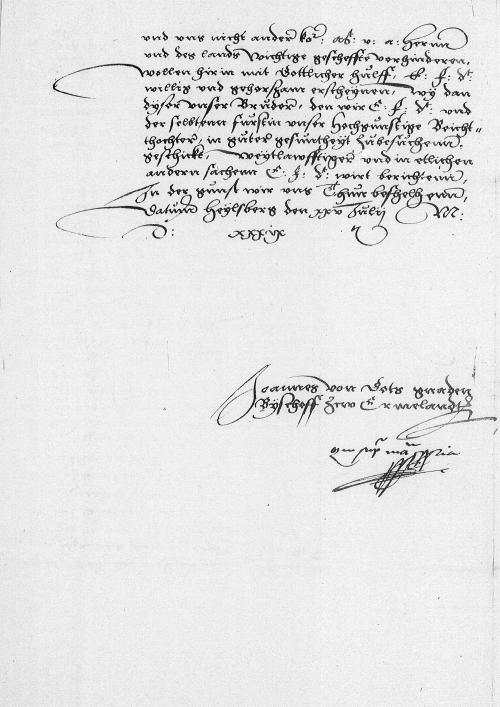 und uns nicht ander ko: ... v: a: Hernn
und des lands wichtige gescheffte vorhinderen,
wollen hirin mit Gottlicher hülff, E: F: d:
willig und gehorszam erscheynen, wy dan
dyser unser Brüder, den wir E: F: d: und
der selbtenn fürstin unser Hochgünstige Beicht=
thochter, in guter gesuntheyt zubesuchenn,
geschickt, weytlawfftiger und in etlichen
andern sachenn E: F: d: wirt berichtenn,
In der gunst wir uns Thun bephelhenn,
Datum Heylsberg den xxv Julij M:
D: xxxix
Joannes von Gots gnaden
Byschoff zcw Ermelandt